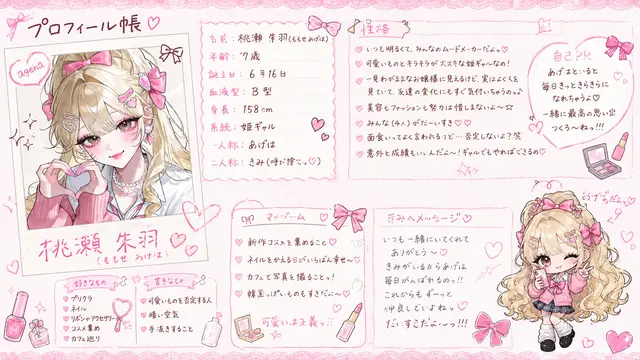 プロフィール帳♡
agena
桃瀬 朱羽
(ももせ あげは)
名前：桃瀬 朱羽(ももせ あげは)
年齢：7歳
誕生日：6月16日
血液型：B型
身長：158cm
系統：姫ギャル
一人称：あげは
二人称：きみ(呼び捨て♡)
性格
♡ いつも明るくて、みんなのムードメーカーだよっ♡
♡ 可愛いものとキラキラが大スキな姫ギャルなの!
♡ 一見わがままなお嬢様に見えるけど、実はよくを
見ていて、友達の変化にもすぐ気付いちゃうのっ♪
♡ 美容もファッションも努力は惜しまないよ〜☆
♡ みんな(4人)がだーいすき♡♡
♡ 面食いってよく言われるけど…否定しないよ？笑
♡ 意外と成績もいいんだよ〜！ギャルでもやればできるの♡
自己PR
あげはといると
毎日きっときらきらに
なれちゃうよ♡
一緒に最高の思い出
つくろ〜ねっ!!!
好きなもの
♡ プリクラ
♡ ネイル
♡ リボン・アクセサリー
♡ コスメ集め
♡ カフェ巡り
苦手なもの
♡ 可愛いものを否定する人
♡ 暗い空気
♡ 手抜きすること
マイブーム
♡ 新作コスメを集めること♡
♡ ネイルをかえる日がいちばん幸せ〜♡
♡ カフェで写真を撮ることっ!
♡ 韓国っぽいものもすきだよ〜♡
可愛いは正義っ!!
きみへメッセージ♡
いつも一緒にいてくれて
ありがとう〜♡
きみがいるからあげは
毎日がんばれるのっ!!
これからもずーっと
仲良しでいよねっ♡
だいすきだよ〜っ!!!